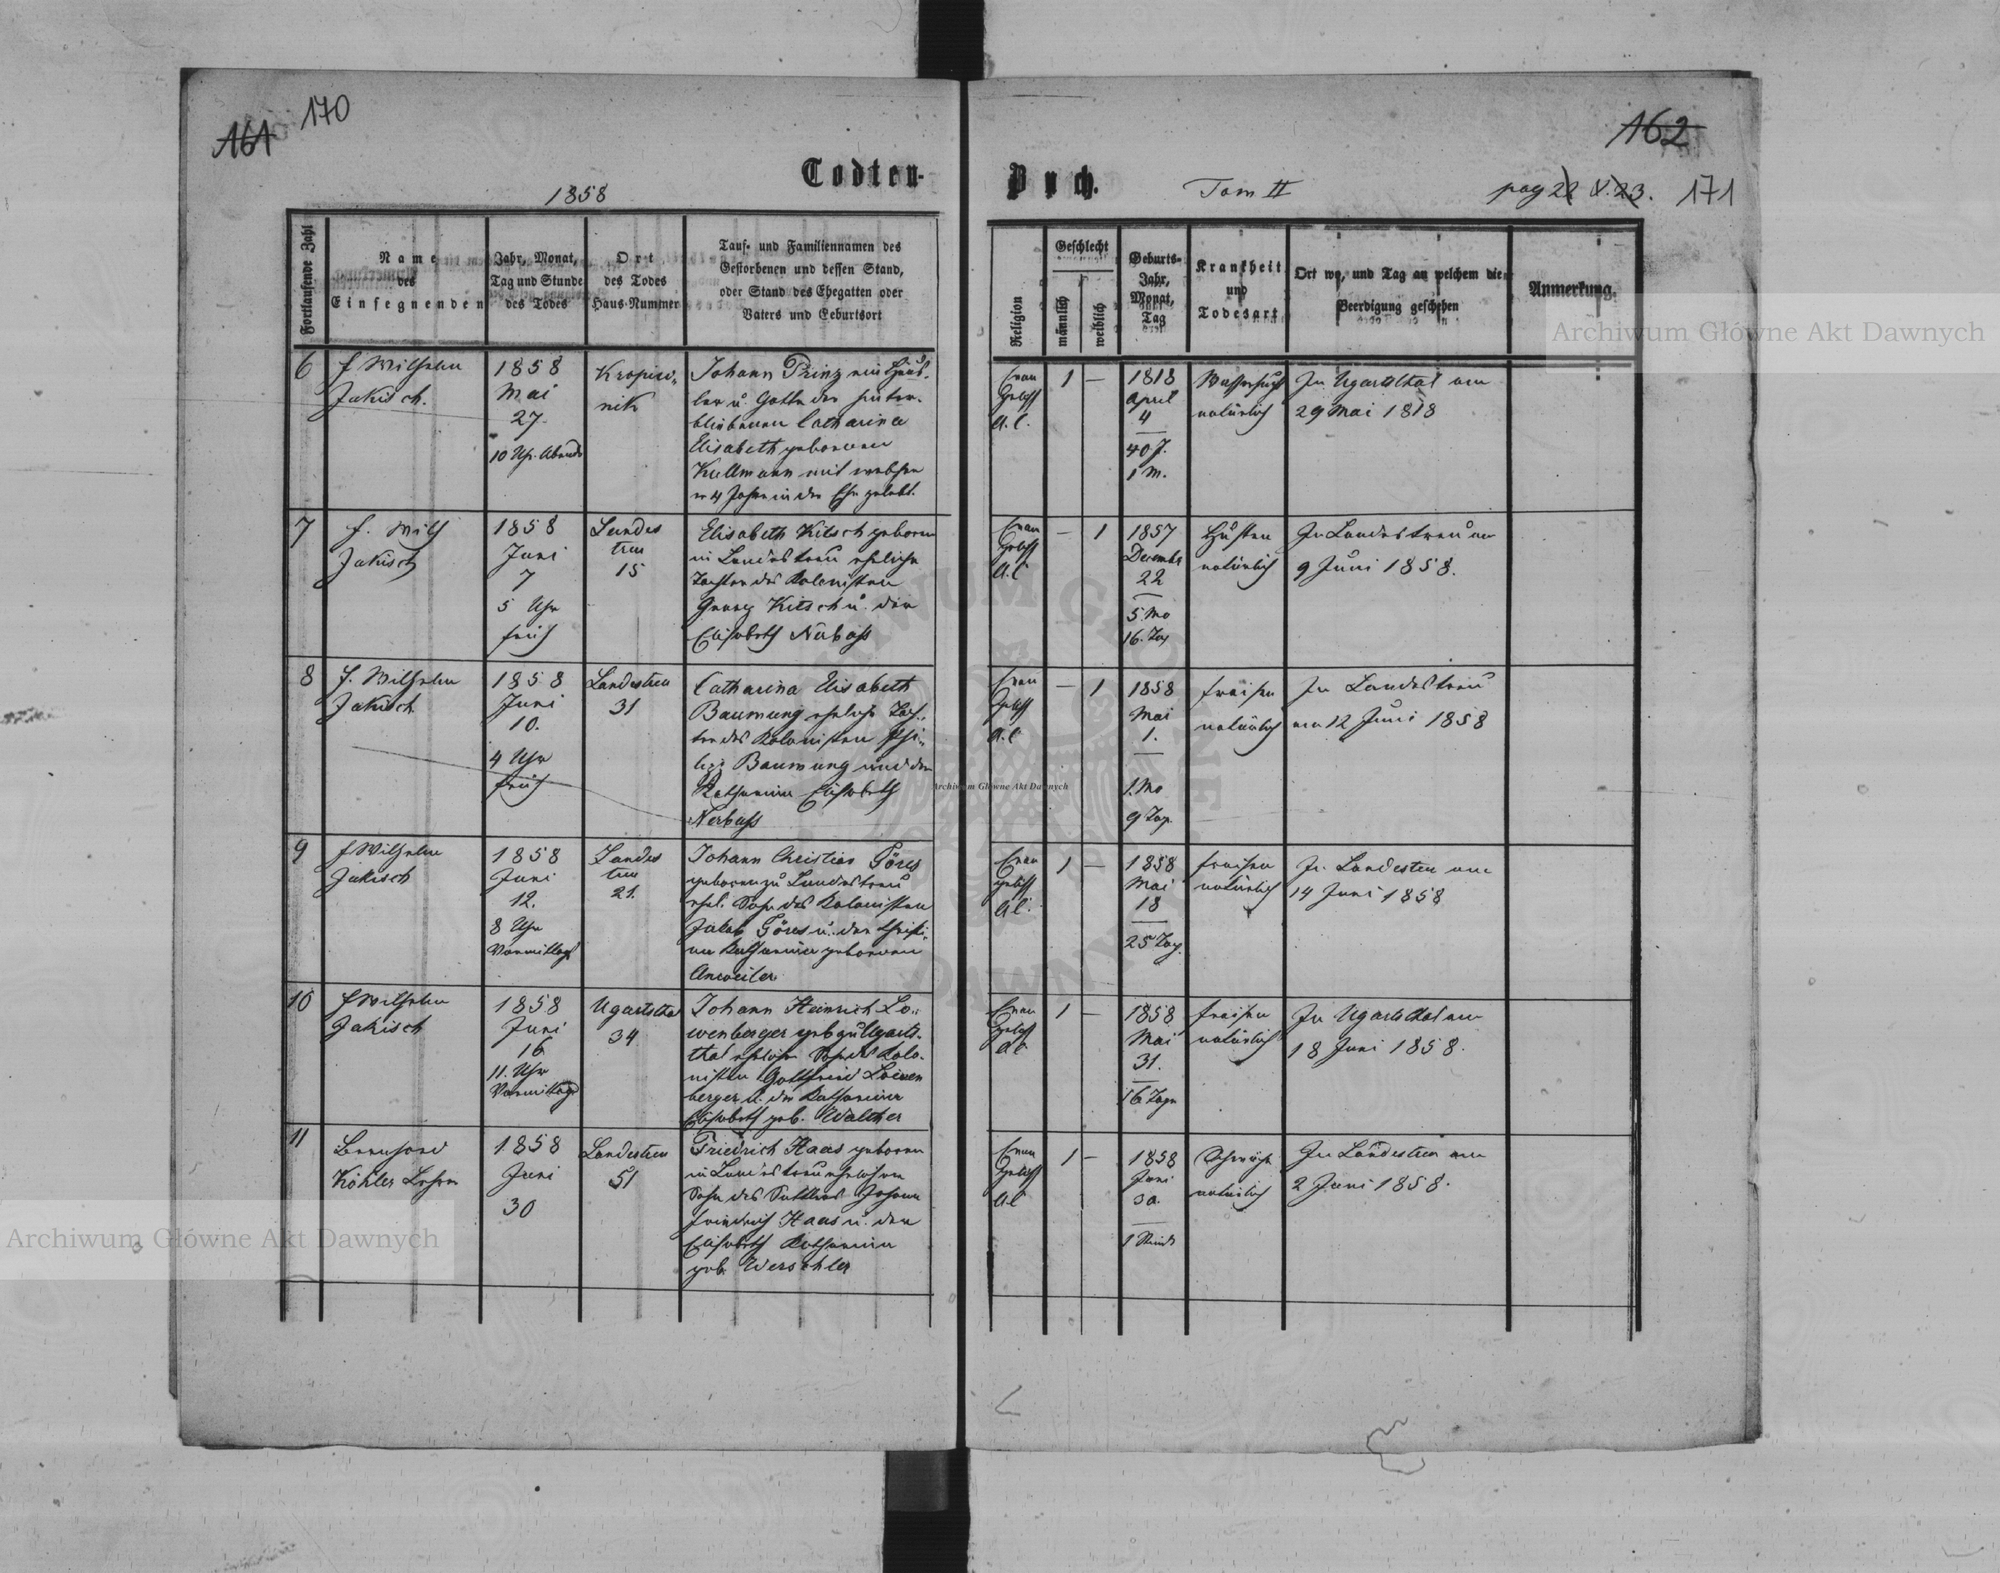 161 170
162
Todten-
Buch.
1858
Tom II
pag 22 V. 23. 171
Fortlaufende Zahl
Name
des
Einsegnenden
Jahr, Monat,
Tag und Stunde
des Todes
Ort
des Todes
Haus-Nummer
Tauf- und Familiennamen des
Gestorbenen und dessen Stand,
oder Stand des Ehegatten oder
Vaters und Geburtsort
Religion
Geschlecht
männlich
weiblich
Geburts-
Jahr,
Monat,
Tag
Krankheit
und
Todesart
Ort wo, und Tag an welchem die
Beerdigung geschehen
Anmerkung.
6
f Wilhelm
Jakisch.
1858
Mai
27.
10 Uhr Abends
Kropiw-
nik
Johann Prinz ein Häus-
ler u. Gatte der hinter-
bliebenen Catharina
Elisabeth geborenen
Kullmann mit welcher
er 4 Jahre in der Ehe gelebt.
Evan
Gelisch
A.C.
1 —
1818
April
4
40 J.
1 M.
Wassersucht
natürlich
In Ugartsthal am
29 Mai 1818
7
f. Wilh
Jakisch
1858
Juni
7
5 Uhr
früh
Landes
treu
15
Elisabeth Kitsch geboren
in Landestreu eheliche
Tochter des Kolonisten
Georg Kitsch u. der
Elisabeth Nerbass
Evan
Gelisch
A.C
— 1
1857
December
22
5 Mo
16. Tag
Husten
natürlich
In Landestreu am
9 Juni 1858.
8
f. Wilhelm
Jakisch
1858
Juni
10.
4 Uhr
früh
Landestreu
31
Catharina Elisabeth
Baumung eheliche Toch-
ter des Kolonisten Phi-
lipp Baumung und der
Katharina Elisabeth
Nerbass
Evan
Gelisch
A.C
— 1
1858
Mai
1.
1. Mo
9 Tag.
Fraisen
natürlich
In Landestreu
am 12 Juni 1858
9
f Wilhelm
Jakisch
1858
Juni
12.
8 Uhr
Vormittags
Landes
treu
21.
Johann Christian Göres
geboren zu Landestreu
ehel. Sohn des Kolonisten
Jakob Göres u. der Christi-
na Katharina geborenen
Anweiler
Evan
gelisch
A.C.
1 —
1858
Mai
18
25 Tag.
Fraisen
natürlich
In Landestreu am
14 Juni 1858
10
f Wilhelm
Jakisch
1858
Juni
16
11. Uhr
Vormittags
Ugartsthal
34
Johann Heinrich Lo-
wenberger geb zu Ugarts-
thal ehelicher Sohn des Kolo-
nisten Gottfried Löwen
berger u. der Katharina
Elisabeth geb. Walther
Evan
gelisch
AC
1 —
1858
Mai
31.
16 Tage
Fraisen
natürlich
In Ugartsthal am
18 Juni 1858.
11
Bernhard
Köhler Lehrer
1858
Juni
30
Landestreu
51
Friedrich Haas geboren
in Landestreu ehelicher
Sohn des Sattlers Johann
Friedrich Haas u. der
Elisabeth Katharina
geb. Werschler
Evan
Gelisch
AC
1 —
1858
Juni
30.
1 Stunde
Schwäche
natürlich
In Landestreu am
2 Juni 1858.
Archiwum Główne Akt Dawnych
Archiwum Główne Akt Dawnych
Archiwum Główne Akt Dawnych